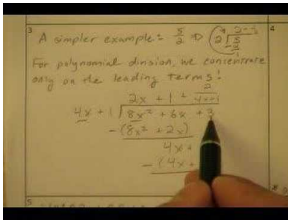 3
4
A simpler example: 5/2 ⇒ 2)5
For polynomial division, we concentrate
only on the leading terms!
2x + 1 + 2/(4x+1)
4x + 1)8x² + 6x + 3
-(8x² + 2x)
4x +
-(4x
5